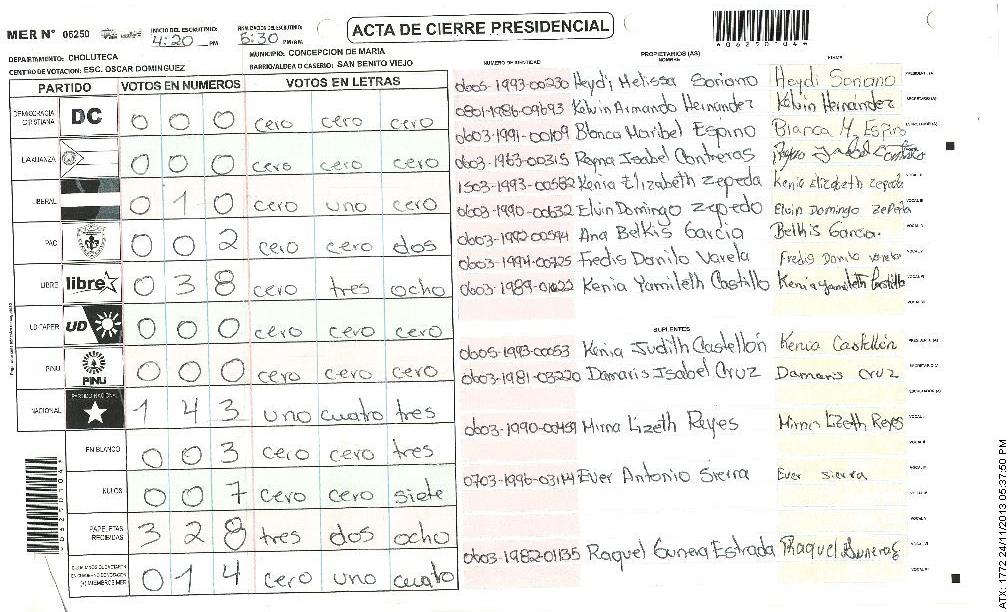 MER Nº 06250 INICIO DEL ESCRUTINIO: 4:20 PM FINALIZACION DEL ESCRUTINIO: 5:30 PM/AM
ACTA DE CIERRE PRESIDENCIAL
DEPARTAMENTO: CHOLUTECA MUNICIPIO: CONCEPCION DE MARIA
CENTRO DE VOTACION: ESC. OSCAR DOMINGUEZ BARRIO/ALDEA O CASERIO: SAN BENITO VIEJO
PARTIDO VOTOS EN NUMEROS VOTOS EN LETRAS
DEMOCRACIA CRISTIANA DC 0 0 0 cero cero cero
LA ALIANZA 0 0 0 cero cero cero
LIBERAL 0 1 0 cero uno cero
PAC 0 0 2 cero cero dos
LIBRE libre 0 3 8 cero tres ocho
UD-FAPER UD 0 0 0 cero cero cero
PINU PINU 0 0 0 cero cero cero
NACIONAL PARTIDO NACIONAL 1 4 3 uno cuatro tres
EN BLANCO 0 0 3 cero cero tres
NULOS 0 0 7 cero cero siete
PAPELETAS RECIBIDAS 3 2 8 tres dos ocho
0 1 4 cero uno cuatro
NUMERO DE IDENTIDAD PROPIETARIOS (AS) NOMBRE FIRMA
0605-1993-00230 Heydi Melissa Soriano Heydi Soriano
0801-1986-09693 Kelvin Armando Hernandez Kelvin Hernández
0603-1991-00109 Blanca Maribel Espino Blanca M. Espino
0603-1963-00315 Reyna Isabel Contreras
1503-1993-00582 Kenia Elizabeth Zepeda Kenia Elizabeth Zepeda
0603-1990-00632 Elvin Domingo Zepeda Elvin Domingo Zepeda
0603-1992-00594 Ana Belkis Garcia Belkis Garcia.
0603-1994-00725 Fredis Danilo Varela Fredis Danilo Varela
Kenia Yamileth Castillo Kenia Yamileth Castillo
SUPLENTES
0605-1993-00053 Kenia Judith Castellón Kenia Castellón
0603-1981-03220 Damaris Isabel Cruz Damaris Cruz
0603-1990-00459 Mirna Lizeth Reyes Mirna Lizeth Reyes
Ever Antonio Sierra Ever sierra
0603-1982-01135 Raquel Gunera Estrada Raquel Guneras
ATX: 1772 24/11/2013 05:37:50 PM